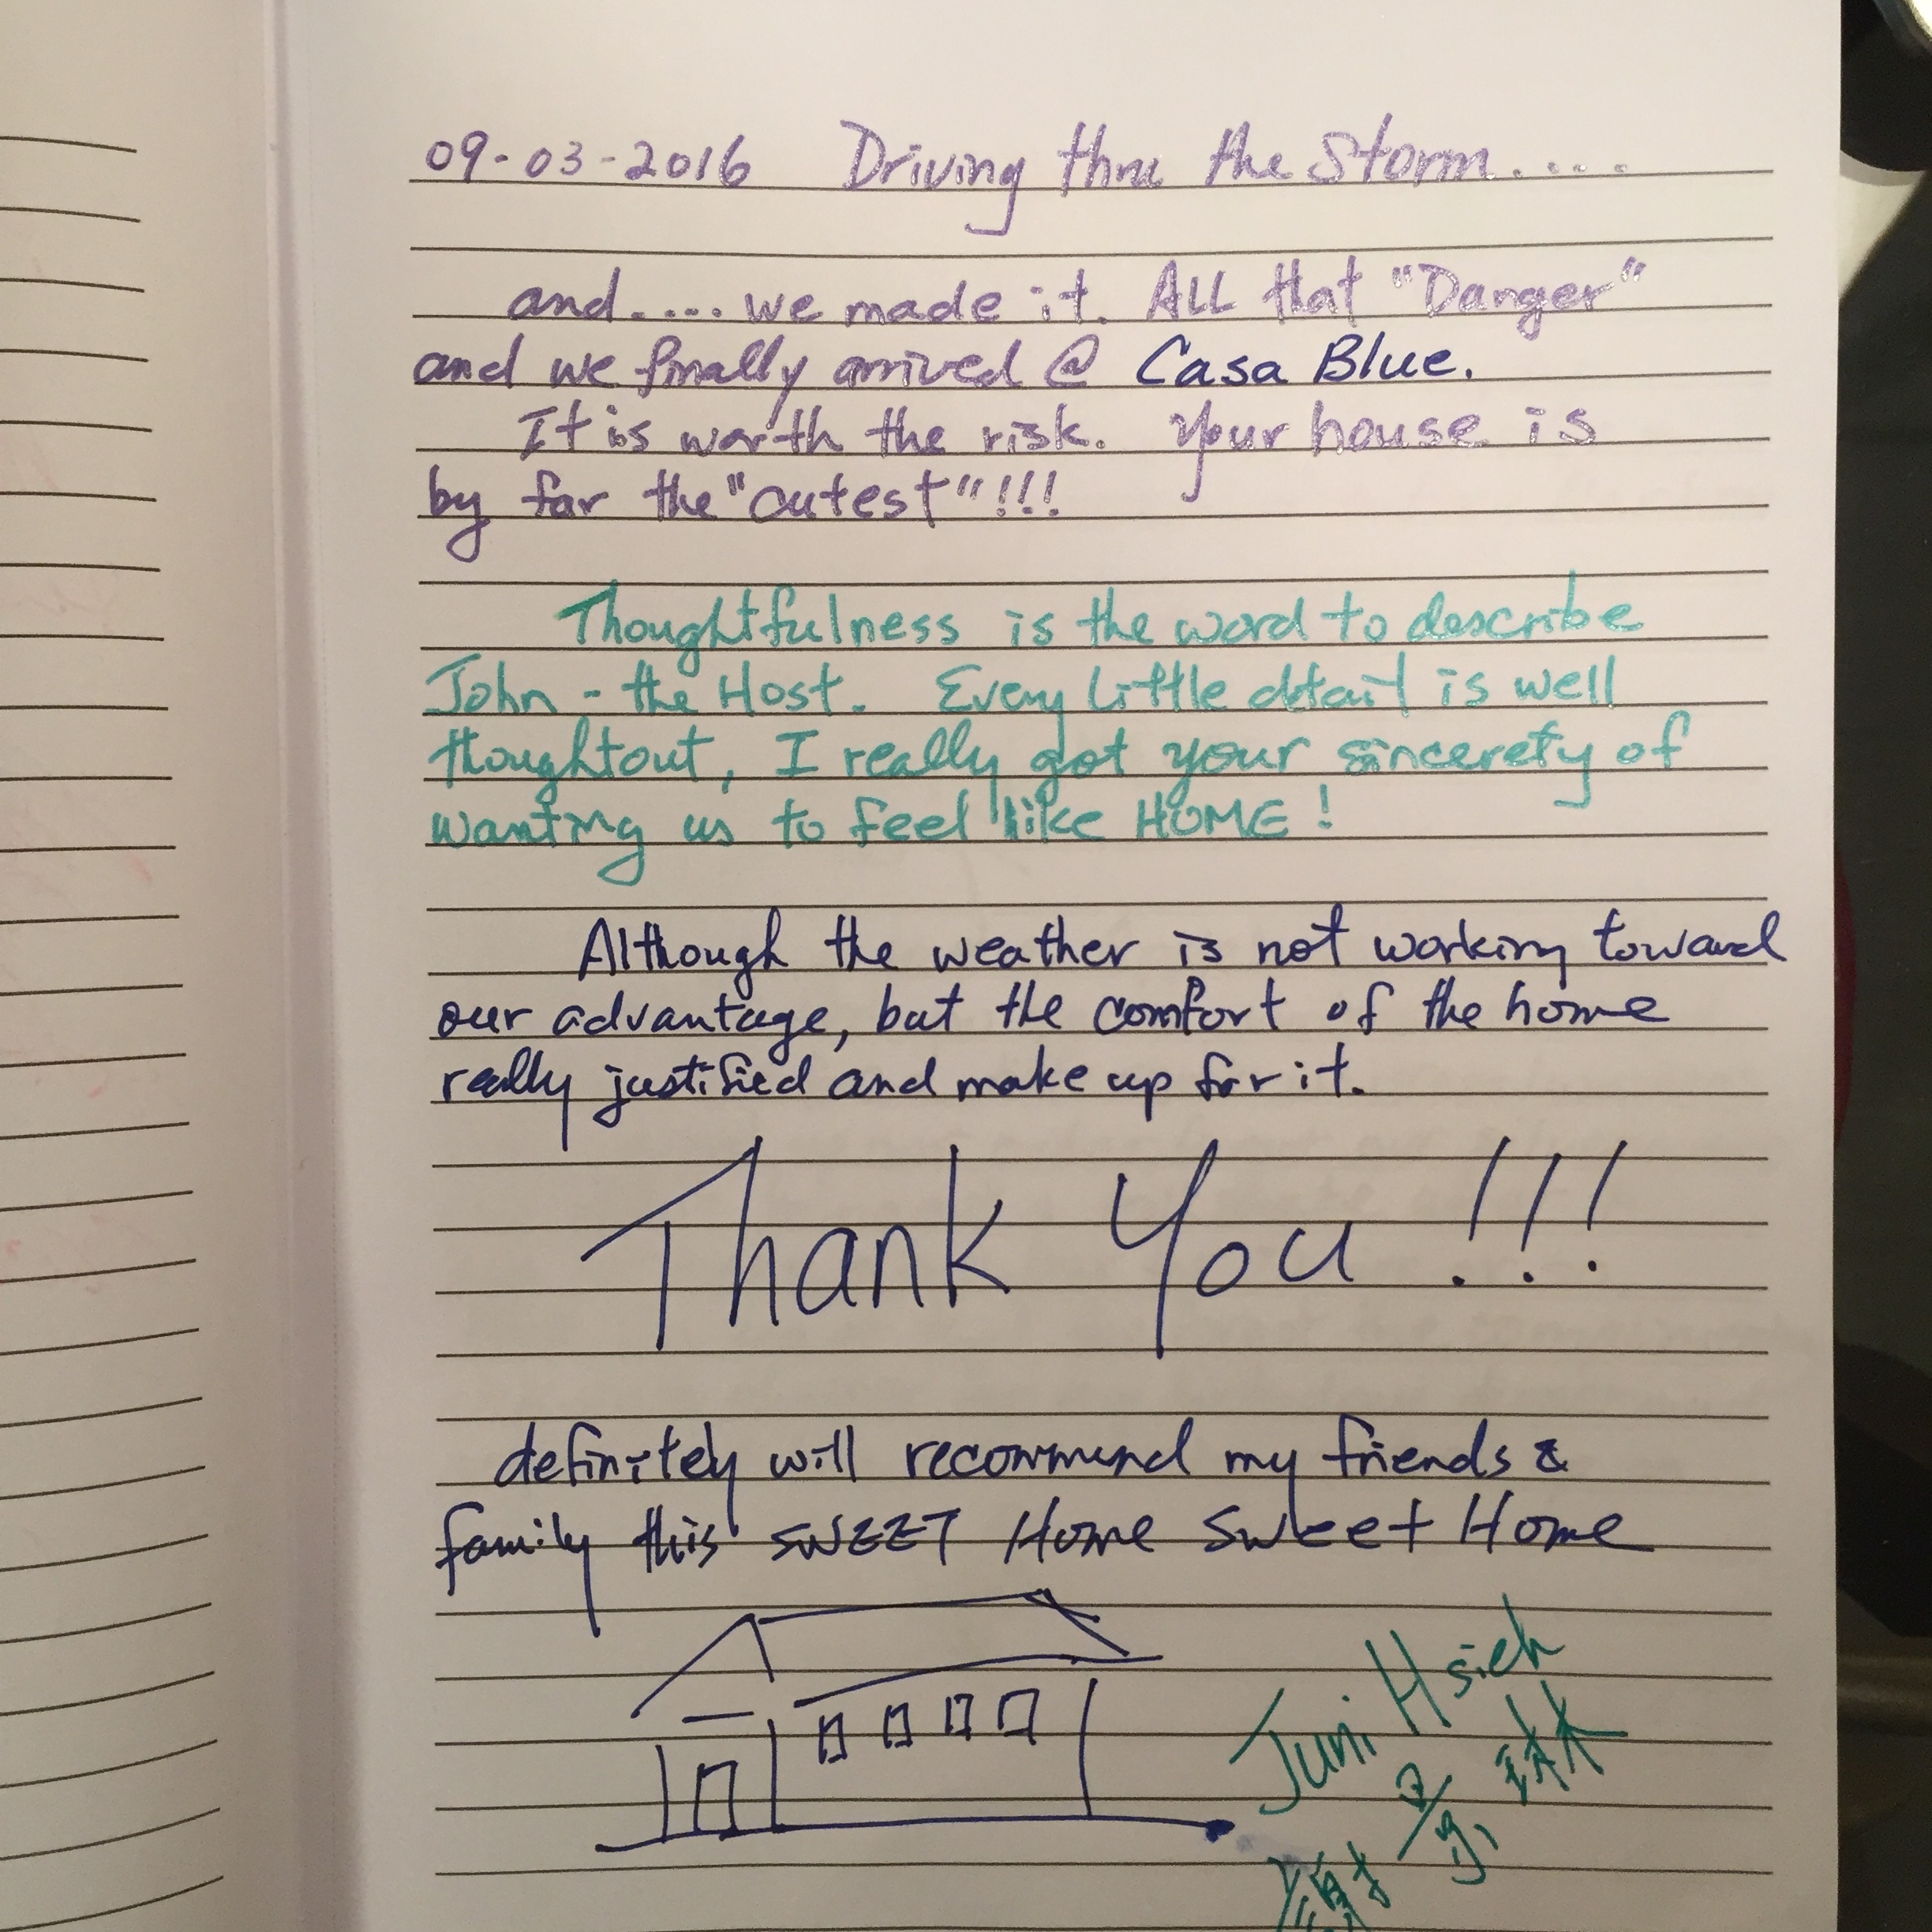 09-03-2016 Driving thru the Storm.....
and.... we made it. ALL that "Danger"
and we finally arrived @ Casa Blue.
It is worth the risk. Your house is
by far the "cutest"!!!
Thoughtfulness is the word to describe
John - the Host. Every Little detail is well
thoughtout, I really got your sincerety of
wanting us to feel like HOME!
Although the weather is not working toward
our advantage, but the comfort of the home
really justified and make up for it.
Thank You!!!
definitely will recommend my friends &
family this SWEET Home Sweet Home
Juni Hsieh
謝 景 琳